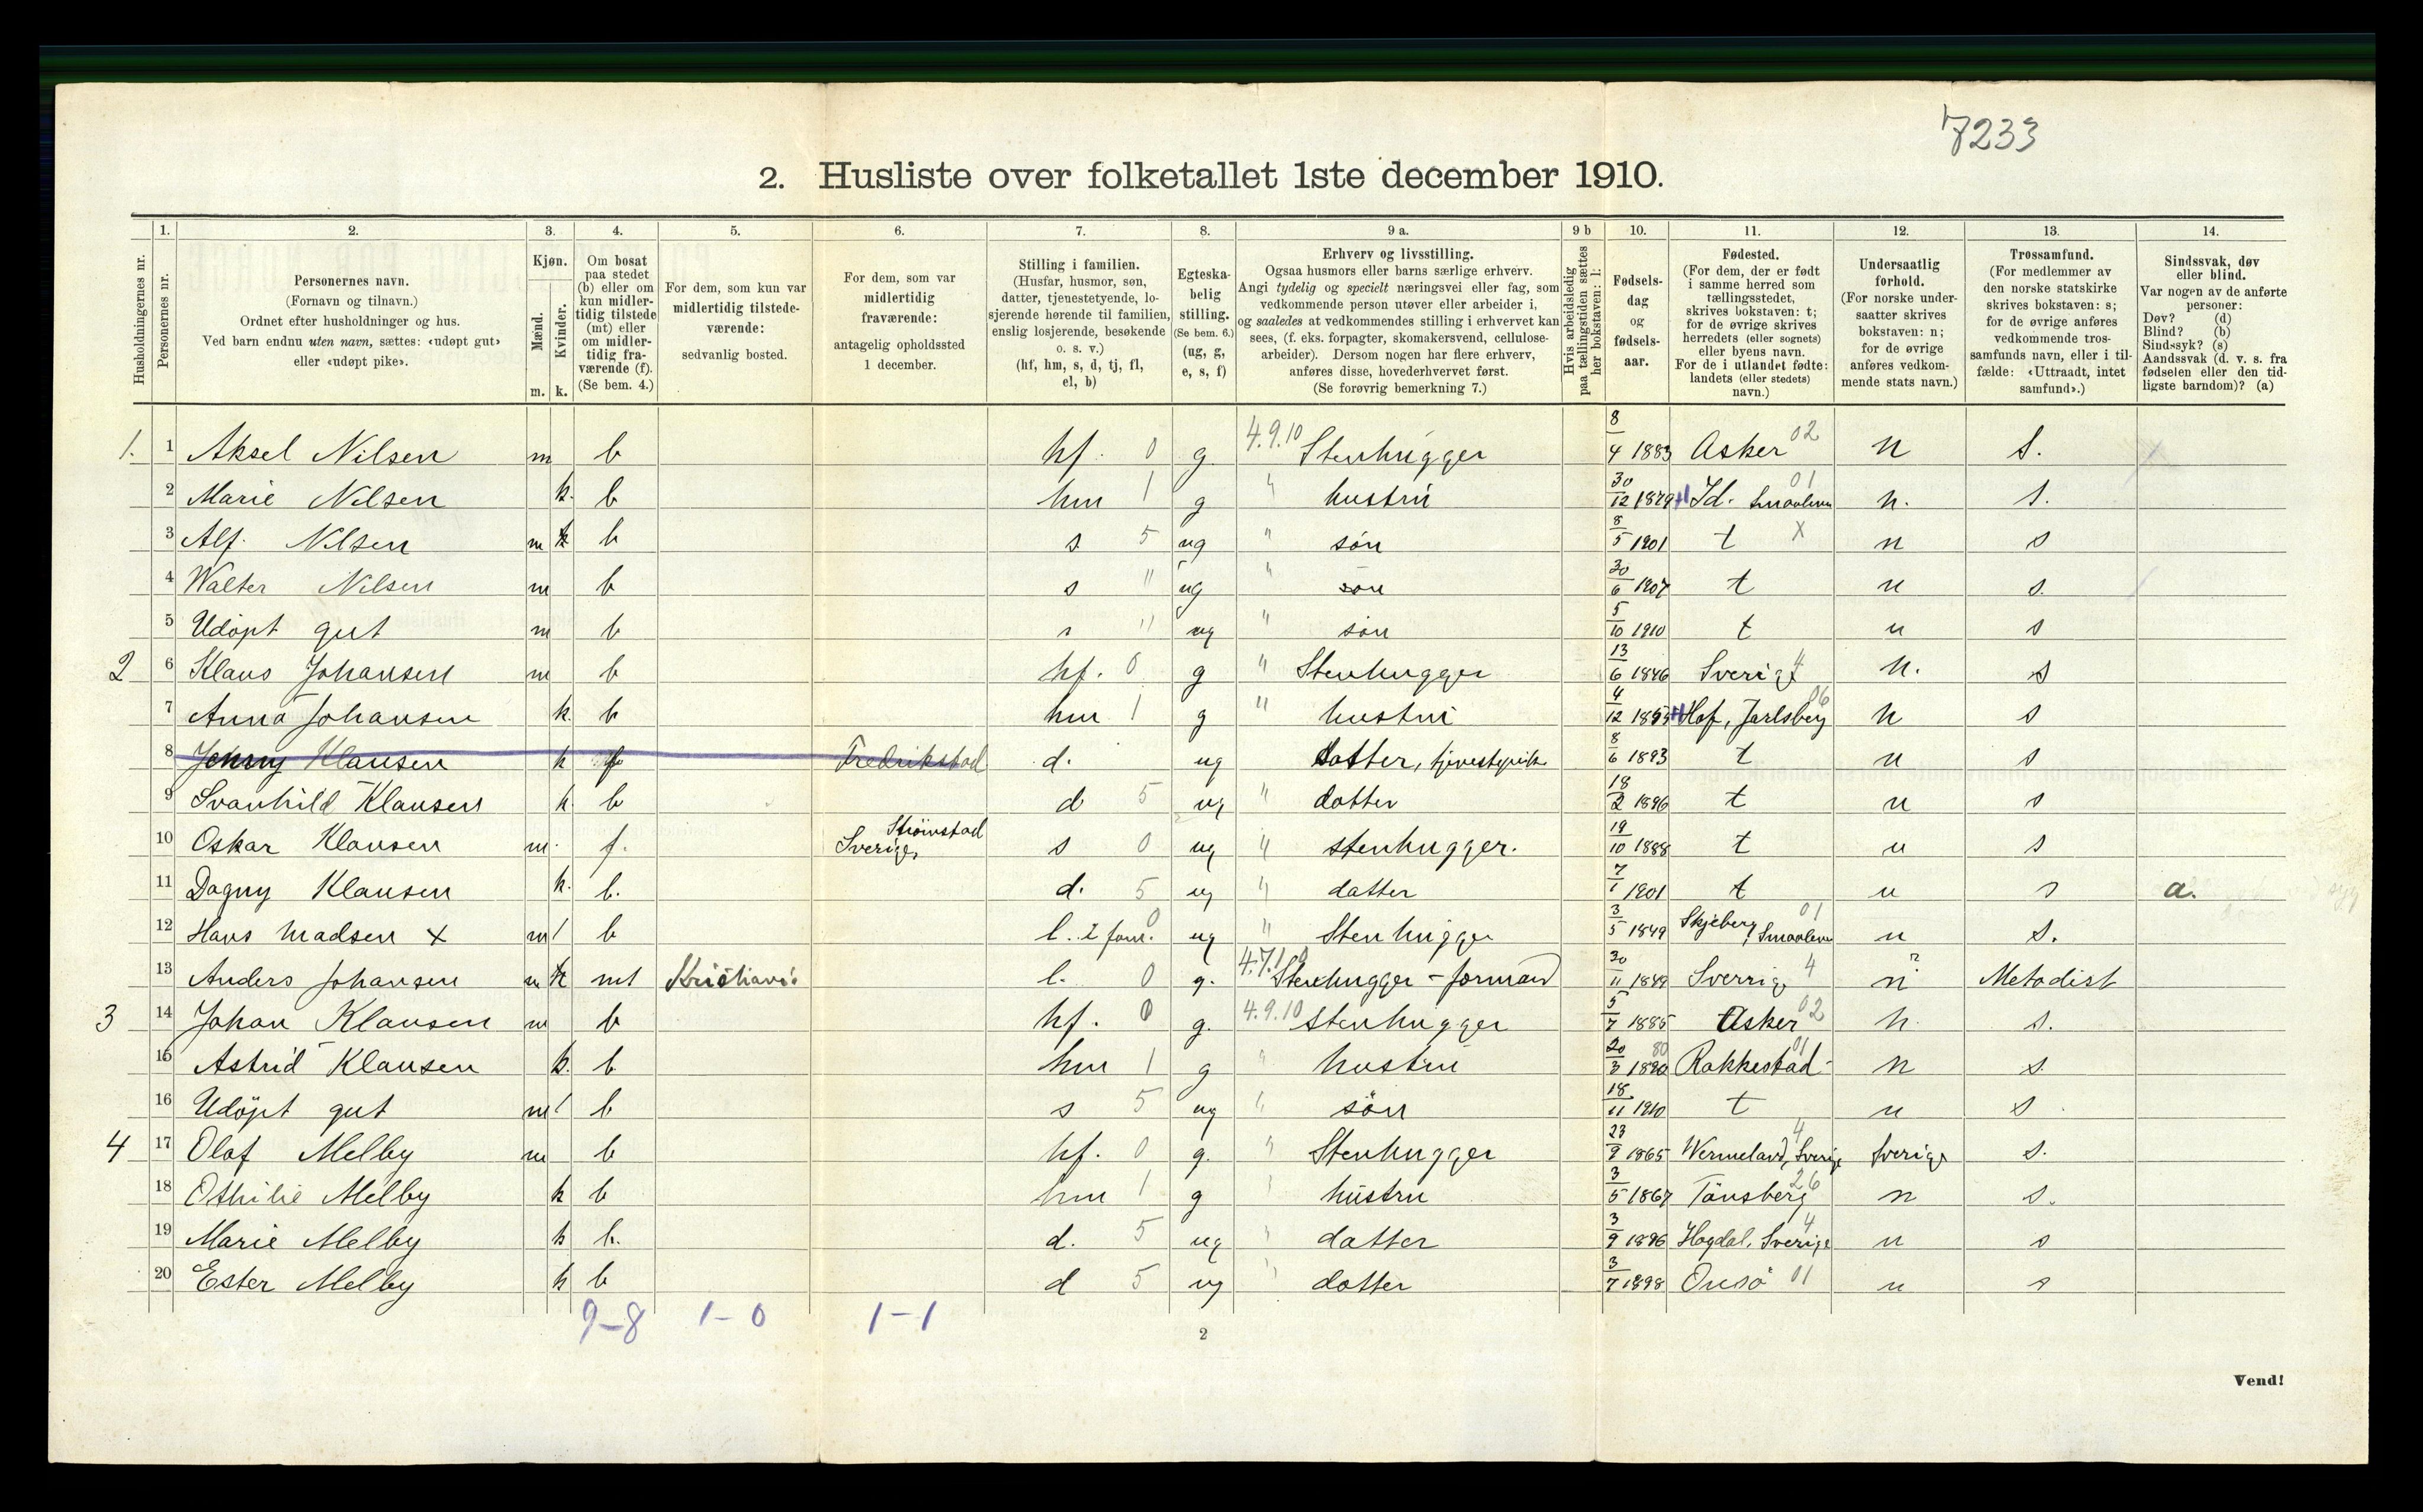 7233
2. Husliste over folketallet 1ste december 1910.
Husholdningernes nr.
1. Personernes nr.
2. Personernes navn. (Fornavn og tilnavn.) Ordnet efter husholdninger og hus. Ved barn endnu uten navn, sættes: «udøpt gut» eller «udøpt pike».
3. Kjøn. Mænd. m. Kvinder. k.
4. Om bosat paa stedet (b) eller om kun midlertidig tilstede (mt) eller om midlertidig fraværende (f). (Se bem. 4.)
5. For dem, som kun var midlertidig tilstedeværende: sedvanlig bosted.
6. For dem, som var midlertidig fraværende: antagelig opholdssted 1 december.
7. Stilling i familien. (Husfar, husmor, søn, datter, tjenestetyende, losjerende hørende til familien, enslig losjerende, besøkende o. s. v.) (hf, hm, s, d, tj, fl, el, b)
8. Egteskabelig stilling. (Se bem. 6.) (ug, g, e, s, f)
9 a. Erhverv og livsstilling. Ogsaa husmors eller barns særlige erhverv. Angi tydelig og specielt næringsvei eller fag, som vedkommende person utøver eller arbeider i, og saaledes at vedkommendes stilling i erhvervet kan sees, (f. eks. forpagter, skomakersvend, cellulosearbeider). Dersom nogen har flere erhverv, anføres disse, hovederhvervet først. (Se forøvrig bemerkning 7.)
9 b Hvis arbeidsledig paa tællingstiden sættes her bokstaven: l:
10. Fødselsdag og fødselsaar.
11. Fødested. (For dem, der er født i samme herred som tællingsstedet, skrives bokstaven: t; for de øvrige skrives herredets (eller sognets) eller byens navn. For de i utlandet fødte: landets (eller stedets) navn.)
12. Undersaatlig forhold. (For norske undersaatter skrives bokstaven: n; for de øvrige anføres vedkommende stats navn.)
13. Trossamfund. (For medlemmer av den norske statskirke skrives bokstaven: s; for de øvrige anføres vedkommende trossamfunds navn, eller i tilfælde: «Uttraadt, intet samfund».)
14. Sindssvak, døv eller blind. Var nogen av de anførte personer: Døv? (d) Blind? (b) Sindssyk? (s) Aandssvak (d. v. s. fra fødselen eller den tidligste barndom)? (a)
1. 1 Aksel Nilsen m b hf. 0 g. 4.9.10 Stenhugger 8/4 1883 Asker 02 n s.
2 Marie Nilsen k. b hm 1 g " hustru 30/12 1879 Id. Smaalene 01 n. s.
3 Alf. Nilsen m k b s 5 ug " søn 8/5 1901 t x n s
4 Walter Nilsen m b s " ug " søn 30/6 1907 t n s.
5 Udøpt gut m b s " ug " søn 5/10 1910 t n s
2 6 Klaus Johansen m b hf. 0 g " Stenhugger 13/6 1846 Sverige 4 n. s
7 Anna Johansen k. b hm 1 g " hustru 4/12 Hof, Jarlsberg 06 n s
8 Jenny Klausen k f Fredrikstad d. ug datter, tjenestepike 8/6 1893 t n s
9 Svanhild Klausen k b d 5 ug " datter 18/2 1896 t n s
10 Oskar Klausen m. f. Strömstad Sverige, s 0 ug " stenhugger. 19/10 1888 t n s
11 Dagny Klausen k. b. d. 5 ug " datter 7/1 1901 t n s a.
12 Hans Madsen x m b l. 2 fam. 0 ug " Stenhugger 3/5 1849 Skjeberg, Smaalene 01 n s.
13 Anders Johansen m k mt Kristiania l. 0 g. Stenhugger - formand 30/11 1849 Sverrig 4 n ? Metodist
3 14 Johan Klausen m b hf. 0 g. 4.9.10 Stenhugger 5/7 1885 Asker 02 n. s.
15 Astrid Klausen k. b. hm 1 g " hustru 20/3 1890 80 Rakkestad 01 n s.
16 Udöpt gut m b s 5 ug " sön 18/11 1910 t n s
4 17 Olaf Melby m b hf. 0 g. " Stenhugger 23/9 1865 Wermeland, Sverige 4 Sverige s.
18 Othilie Melby k b hm 1 g " hustru 3/5 1867 Tönsberg 26 n s.
19 Marie Melby k b. d. 5 ug " datter 3/9 1896 Hogdal, Sverige 4 n s
20 Ester Melby k b d 5 ug " datter 3/7 1898 Onsö 01 n s
9-8 1-0 1-1
2
Vend!